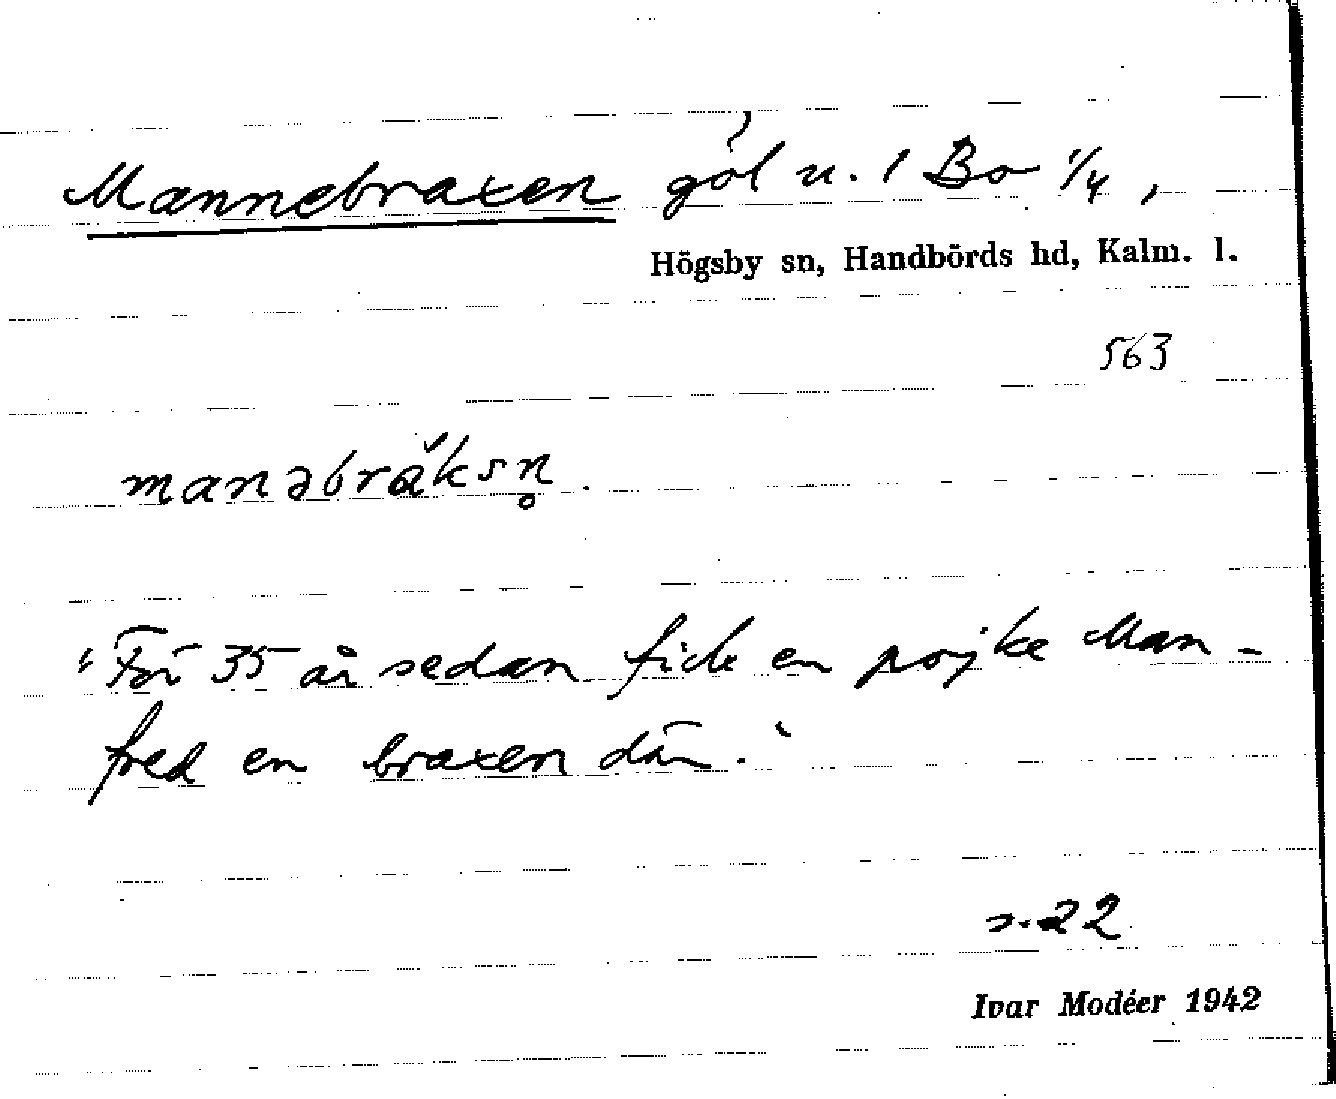 Mannebraxen göl u. 1 Bo 1/4,
Högsby sn, Handbörds hd, Kalm. l.
563
manəbrăksn̥.
"För 35 år sedan fick en pojke Man-
fred en braxen där."
s. 22
Ivar Modéer 1942